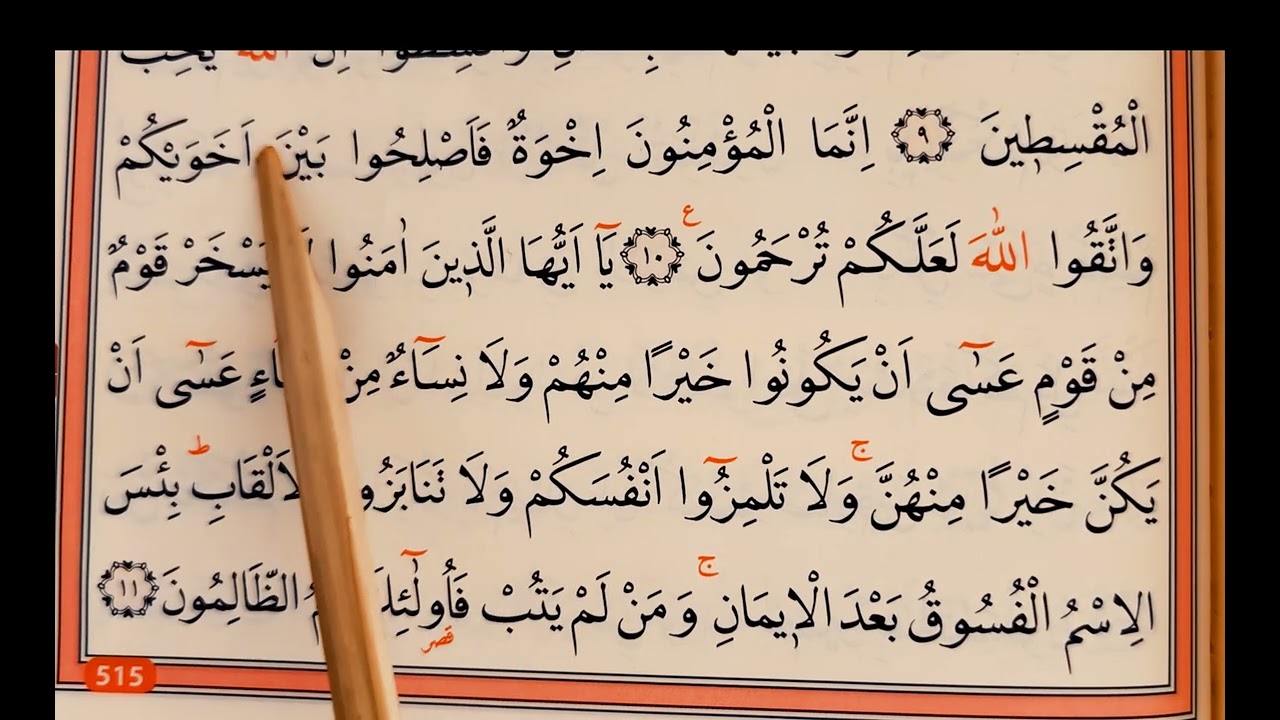 الله يُحِبُّ
الْمُقْسِطِينَ ﴿٩﴾ اِنَّمَا الْمُؤْمِنُونَ اِخْوَةٌ فَاَصْلِحُوا بَيْنَ اَخَوَيْكُمْ
وَاتَّقُوا اللّٰهَ لَعَلَّكُمْ تُرْحَمُونَ ﴿١٠﴾ ع يَٓا اَيُّهَا الَّذِينَ اٰمَنُوا يَسْخَرْ قَوْمٌ
مِنْ قَوْمٍ عَسٰٓى اَنْ يَكُونُوا خَيْرًا مِنْهُمْ وَلَا نِسَٓاءٌ مِنْ عَسٰٓى اَنْ
يَكُنَّ خَيْرًا مِنْهُنَّ ج وَلَا تَلْمِزُٓوا اَنْفُسَكُمْ وَلَا تَنَابَزُوا بِئْسَ ط
الِاسْمُ الْفُسُوقُ بَعْدَ الْاِيمَانِ ج وَمَنْ لَمْ يَتُبْ الظَّالِمُونَ ﴿١١﴾
قصر
515